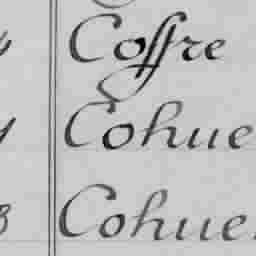 Coffre
Cohue
Cohue